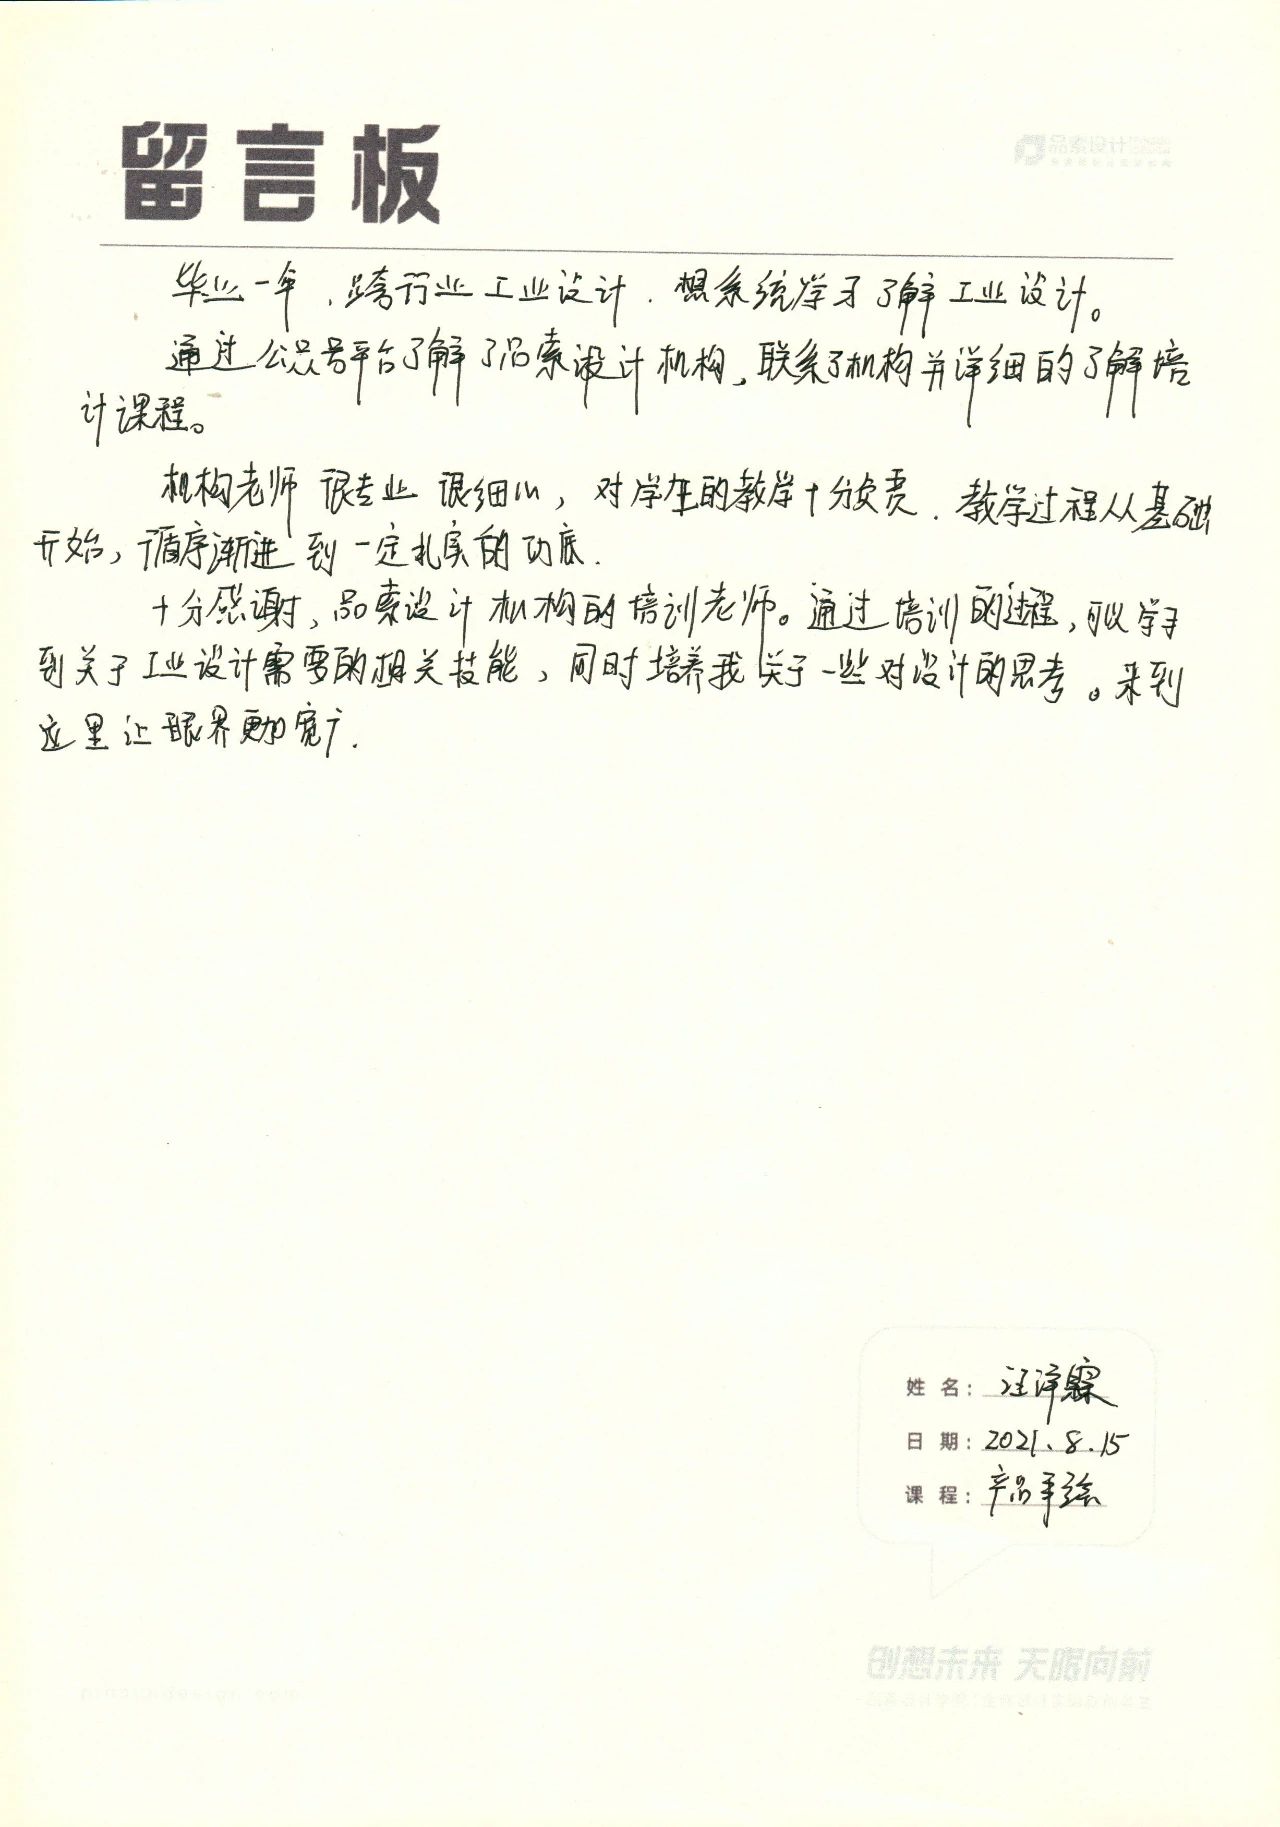 留言板
品索设计
毕业一年，跨行业工业设计．想系统学习了解工业设计。
通过公众号平台了解了品索设计机构，联系了机构并详细的了解培
计课程。
机构老师很专业 很细心，对学生的教学十分负责．教学过程从基础
开始，循序渐进到一定扎实的功底．
十分感谢，品索设计机构的培训老师。通过培训的过程，可以学习
到关于工业设计需要的相关技能，同时培养我关于一些对设计的思考。来到
这里让眼界更加宽广．
姓 名： 汪泽霖
日 期：2021.8.15
课 程： 产品手绘
创想未来 无限向前